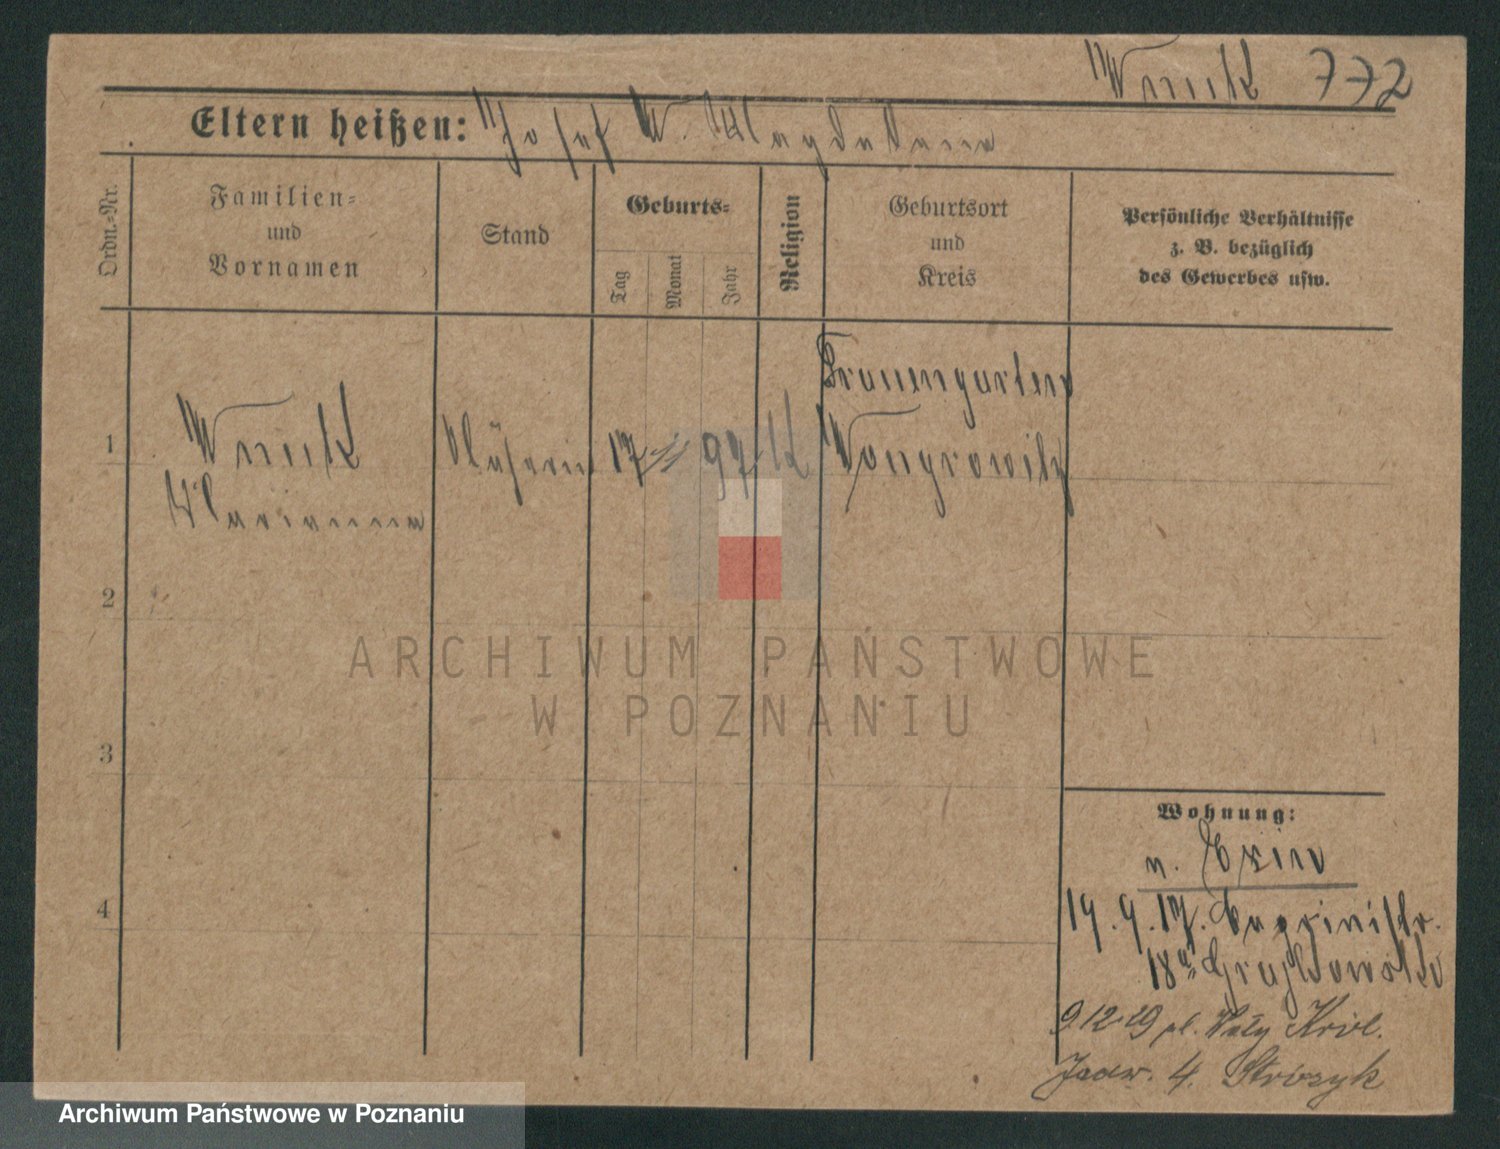 Wnuk 772
Eltern heißen: Josef u. Magdalena
Ordn.-Nr.
Familien-
und
Vornamen
Stand
Geburts-
Tag
Monat
Jahr
Religion
Geburtsort
und
Kreis
Persönliche Verhältnisse
z. B. bezüglich
des Gewerbes usw.
Frauengarten
1 Wnuk Näherin 17 97 K Wongrowitz
Marianna
2
3
4
ARCHIWUM PAŃSTWOWE
W POZNANIU
Wohnung:
n. Exin
19.9.17.
18a Grajkowska
9 12 29 pl. Wały Król.
Jadw. 4. Stróżyk
Archiwum Państwowe w Poznaniu